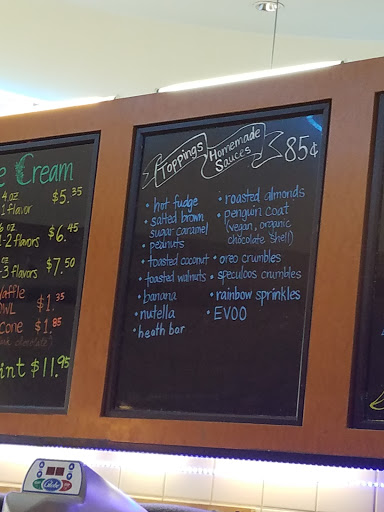 Cream
4 oz
1 flavor
$5.35
oz
-2 flavors
$6.45
oz
-3 flavors
$7.50
$1.35
cone
$1.85
$11.95
Toppings
Homemade
Sauces
85¢
• hot fudge
• salted brown
sugar caramel
• peanuts
• toasted coconut
• toasted walnuts
• banana
• nutella
• heath bar
• roasted almonds
• penguin coat
(vegan, organic
chocolate shell)
• oreo crumbles
• speculoos crumbles
• rainbow sprinkles
• EVOO
Globe